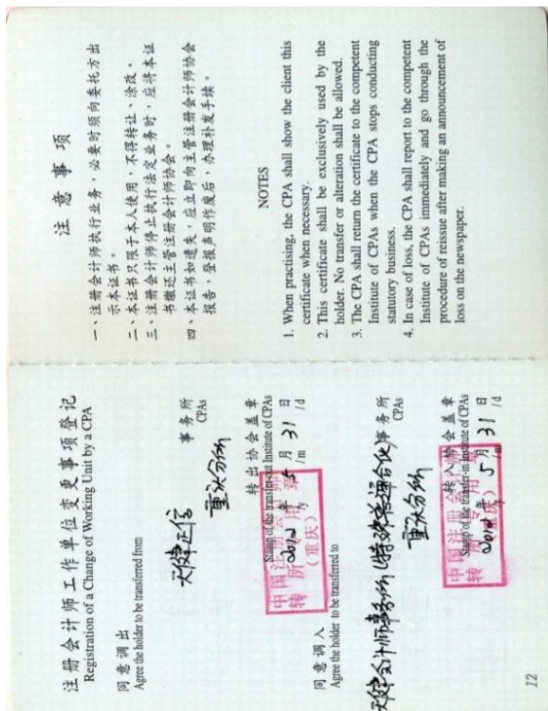 注册会计师工作单位变更事项登记
Registration of a Change of Working Unit by a CPA
同意调出
Agree the holder to be transferred from
天健正信
重庆分所
事务所
CPAs
转出协会盖章
Stamp of the transfer-out Institute of CPAs
中国注册会计师
转所专用章
(重庆)
2012年5月31日
/y /m /d
同意调入
Agree the holder to be transferred to
天健会计师事务所(特殊普通合伙)事务所
CPAs
重庆分所
转入协会盖章
Stamp of the transfer-in Institute of CPAs
中国注册会计师
(重庆)
2012年5月31日
/m /d
12
注意事项
一、注册会计师执行业务,必要时须向委托方出
示本证书。
二、本证书只限于本人使用,不得转让、涂改。
三、注册会计师停止执行法定业务时,应将本证
书缴还主管注册会计师协会。
四、本证书如遗失,应立即向主管注册会计师协会
报告,登报声明作废后,办理补发手续。
NOTES
1. When practising, the CPA shall show the client this
certificate when necessary.
2. This certificate shall be exclusively used by the
holder. No transfer or alteration shall be allowed.
3. The CPA shall return the certificate to the competent
Institute of CPAs when the CPA stops conducting
statutory business.
4. In case of loss, the CPA shall report to the competent
Institute of CPAs immediately and go through the
procedure of reissue after making an announcement of
loss on the newspaper.